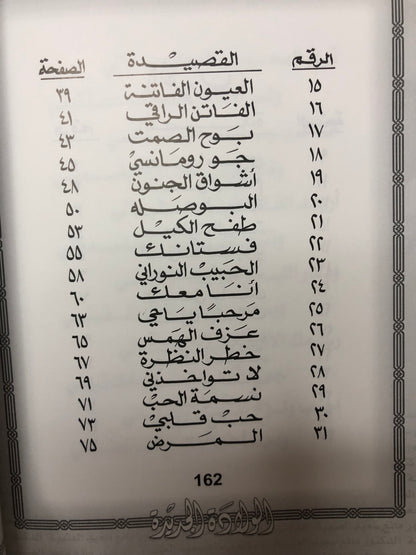 الرقم القصيدة الصفحة
١٥ العيون الفاتنة ٣٩
١٦ الفاتن الراقي ٤١
١٧ بوح الصمت ٤٣
١٨ جو رومانسي ٤٥
١٩ أشواق الجنون ٤٨
٢٠ البوصله ٥٠
٢١ طفح الكيل ٥٣
٢٢ فستانك ٥٥
٢٣ الحبيب النوراني ٥٨
٢٤ انا معك ٦٠
٢٥ مرحبا ياحي ٦٣
٢٦ عزف الهمس ٦٥
٢٧ خطر النظرة ٦٧
٢٨ لا تواخذني ٦٩
٢٩ نسمة الحب ٧١
٣٠ حب قلبي ٧٣
٣١ المرض ٧٥
162
الولادة الجديدة